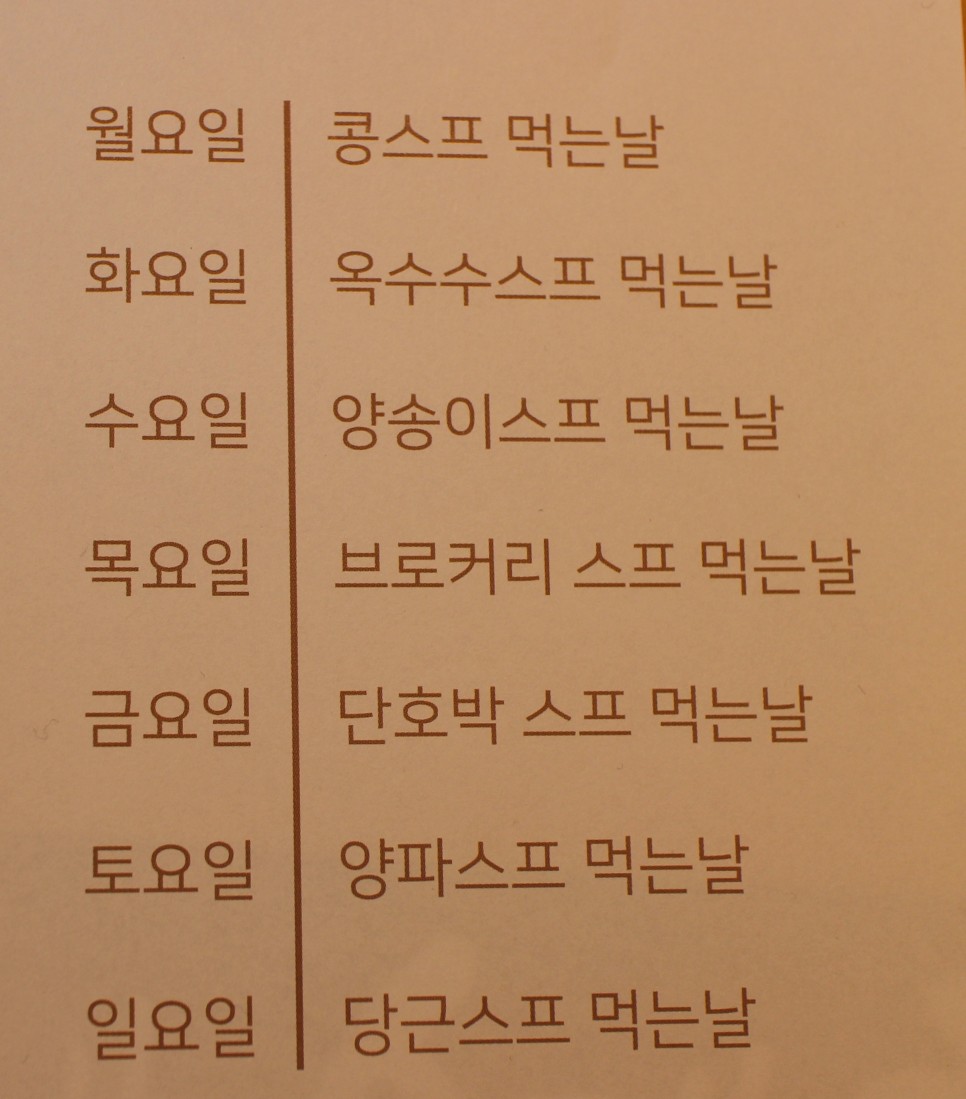 월요일 콩스프 먹는날
화요일 옥수수스프 먹는날
수요일 양송이스프 먹는날
목요일 브로커리 스프 먹는날
금요일 단호박 스프 먹는날
토요일 양파스프 먹는날
일요일 당근스프 먹는날